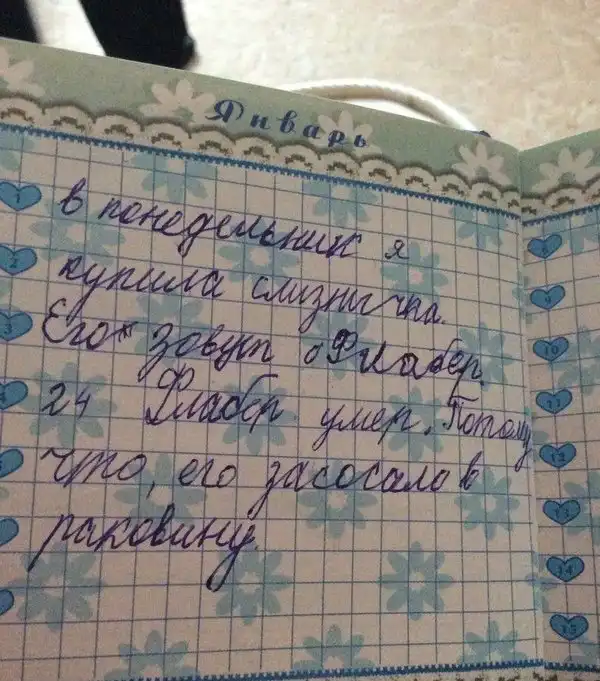 Январь
1 в понедельник я
2 купила слизнячка.
3 Его зовут Флабер.
4 24 Флабер умер. Потому
5 что, его засосало в
раковину.
8
9
10
11
12
13
14
15